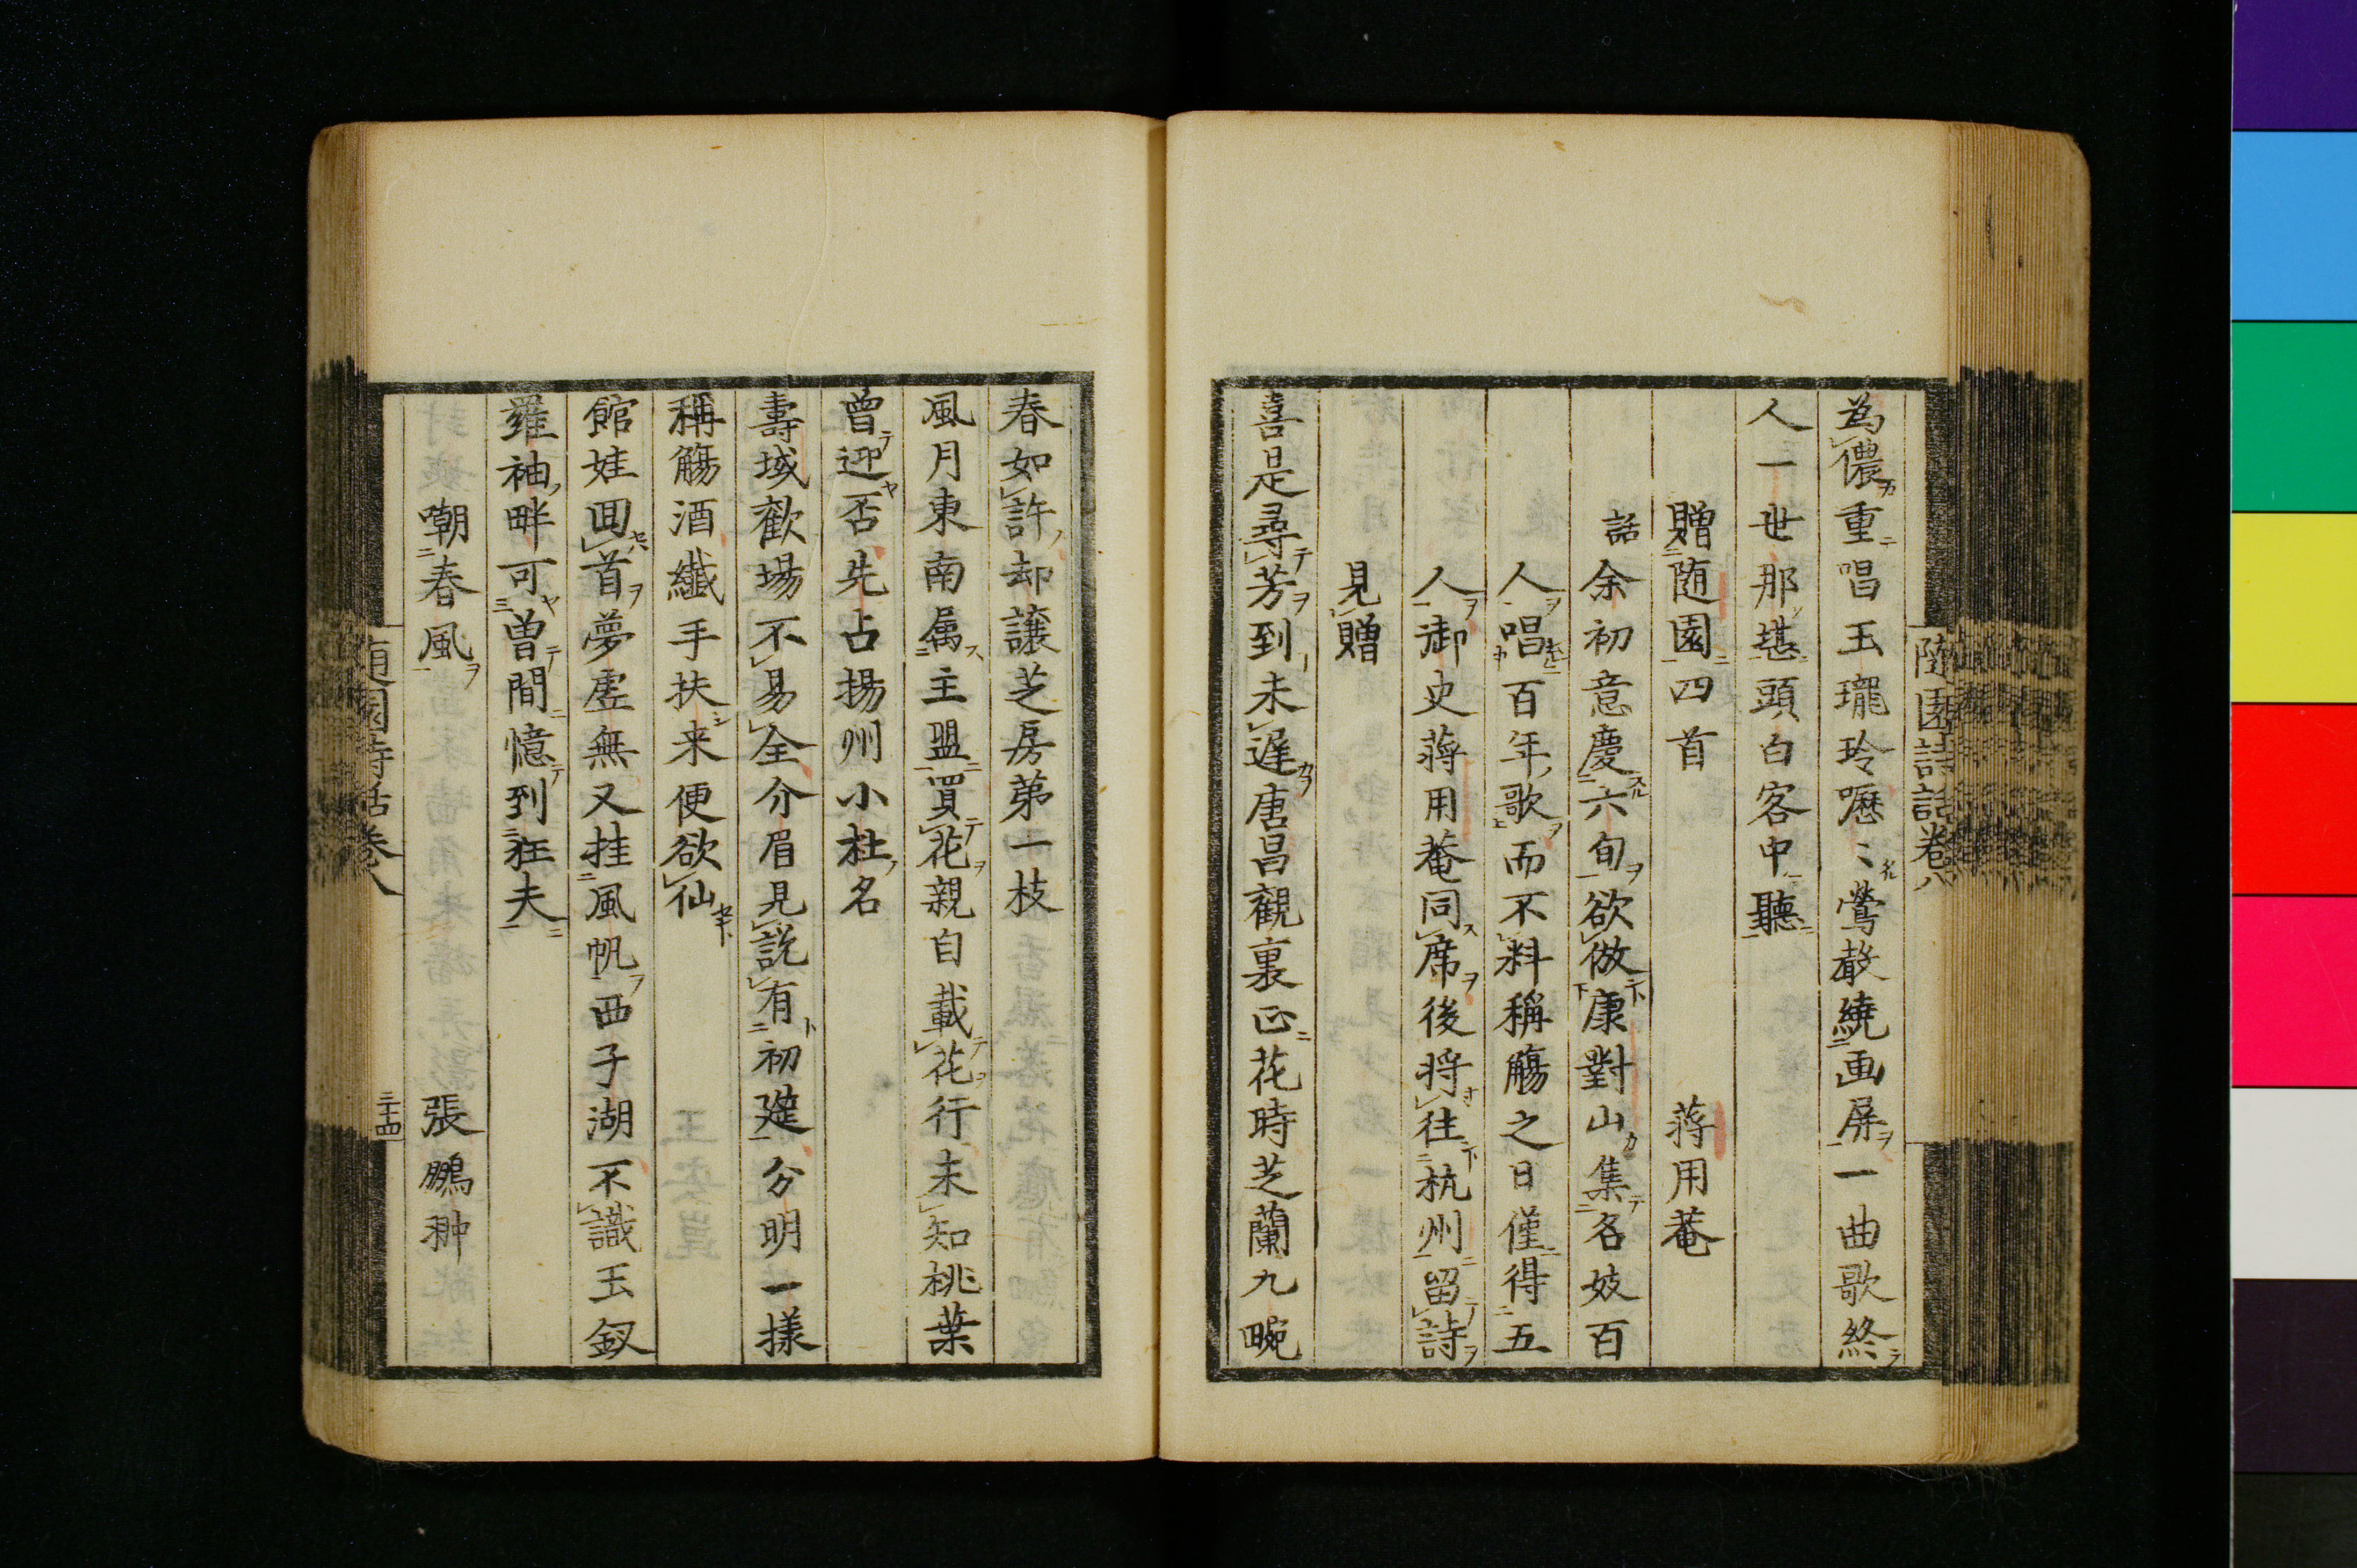 隨園詩話卷八
為儂重唱玉瓏玲嚦〻鶯聲繞画屏一曲歌終
人一世那堪頭白客中聽
贈随園四首 蒋用菴
話余初意慶六旬欲倣康對山集名妓百
人唱百年歌而不料稱觴之日僅得五
人御史蒋用菴同席後将往杭州留詩
見贈
喜是尋芳到未遅唐昌觀裏正花時芝蘭九畹
春如許却讓芝房苐一枝
風月東南属主盟買花親自載花行未知桃葉
曽迎否先占揚州小杜名
壽域歡場不易全介眉見說有初筵分明一樣
稱觴酒纎手扶来便欲仙
館娃囬首夢虗無又挂風帆西子湖不識玉釵
羅袖畔可曽間憶到狂夫
嘲春風 張鵬翀
随園詩話卷八
三十四